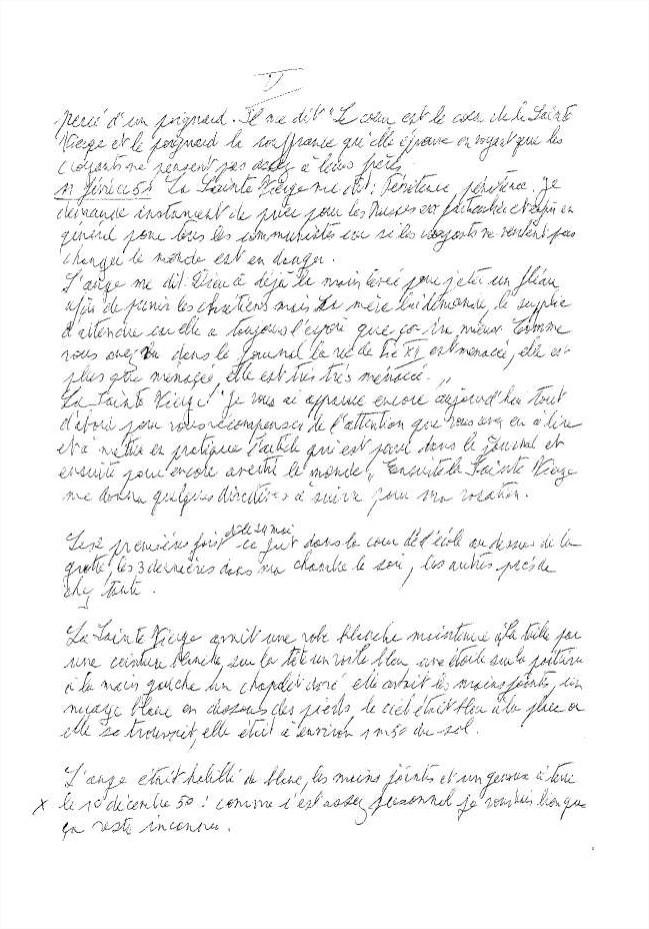 V
percé d'un poignard. Il me dit "Le cœur est le cœur de la Sainte
Vierge et le poignard la souffrance qu'elle éprouve en voyant que les
croyants ne pensent pas assez à leurs frères
11 février 51 La Sainte Vierge me dit : Pénitence, pénitence. Je
demande instamment de prier pour les Russes en particulier et enfin en
général pour tous les communistes car si les croyants ne veulent pas
changer le monde est en danger.
L'ange me dit. Dieu a déjà la main levée pour jeter un fléau
afin de punir les chrétiens mais La mère lui demande, le supplie
d'attendre car elle a toujours l'espoir que ça ira mieux. Comme
vous avez vu dans le Journal la vie de Pie XI est menacée, elle est
plus que menacée, elle est très très menacée."
La Sainte Vierge "Je vous ai apparue encore aujourd'hui tout
d'abord pour vous récompenser de l'attention que vous avez eu à lire
et à mettre en pratique l'article qui est paru dans le Journal et
ensuite pour encore avertir le monde" Ensuite la Sainte Vierge
me donna quelques directives à suivre pour ma vocation.
Les 2 premières fois et le 24 mai ce fut dans la cour de l'école au dessus de la
grotte, les 3 dernières dans ma chambre le soir, les autres près de
chez tante.
La Sainte Vierge avait une robe blanche maintenue à la taille par
une ceinture blanche, sur la tête un voile bleu une étoile sur la poitrine
à la main gauche un chapelet doré elle avait les mains jointes, un
nuage blanc en dessous des pieds le ciel était bleu à la place où
elle se trouvait, elle était à environ 1 m 50 du sol.
L'ange était habillé de blanc, les mains jointes et un genoux à terre
x le 10 décembre 50 : comme c'est assez personnel je voudrais bien que
ça reste inconnu.